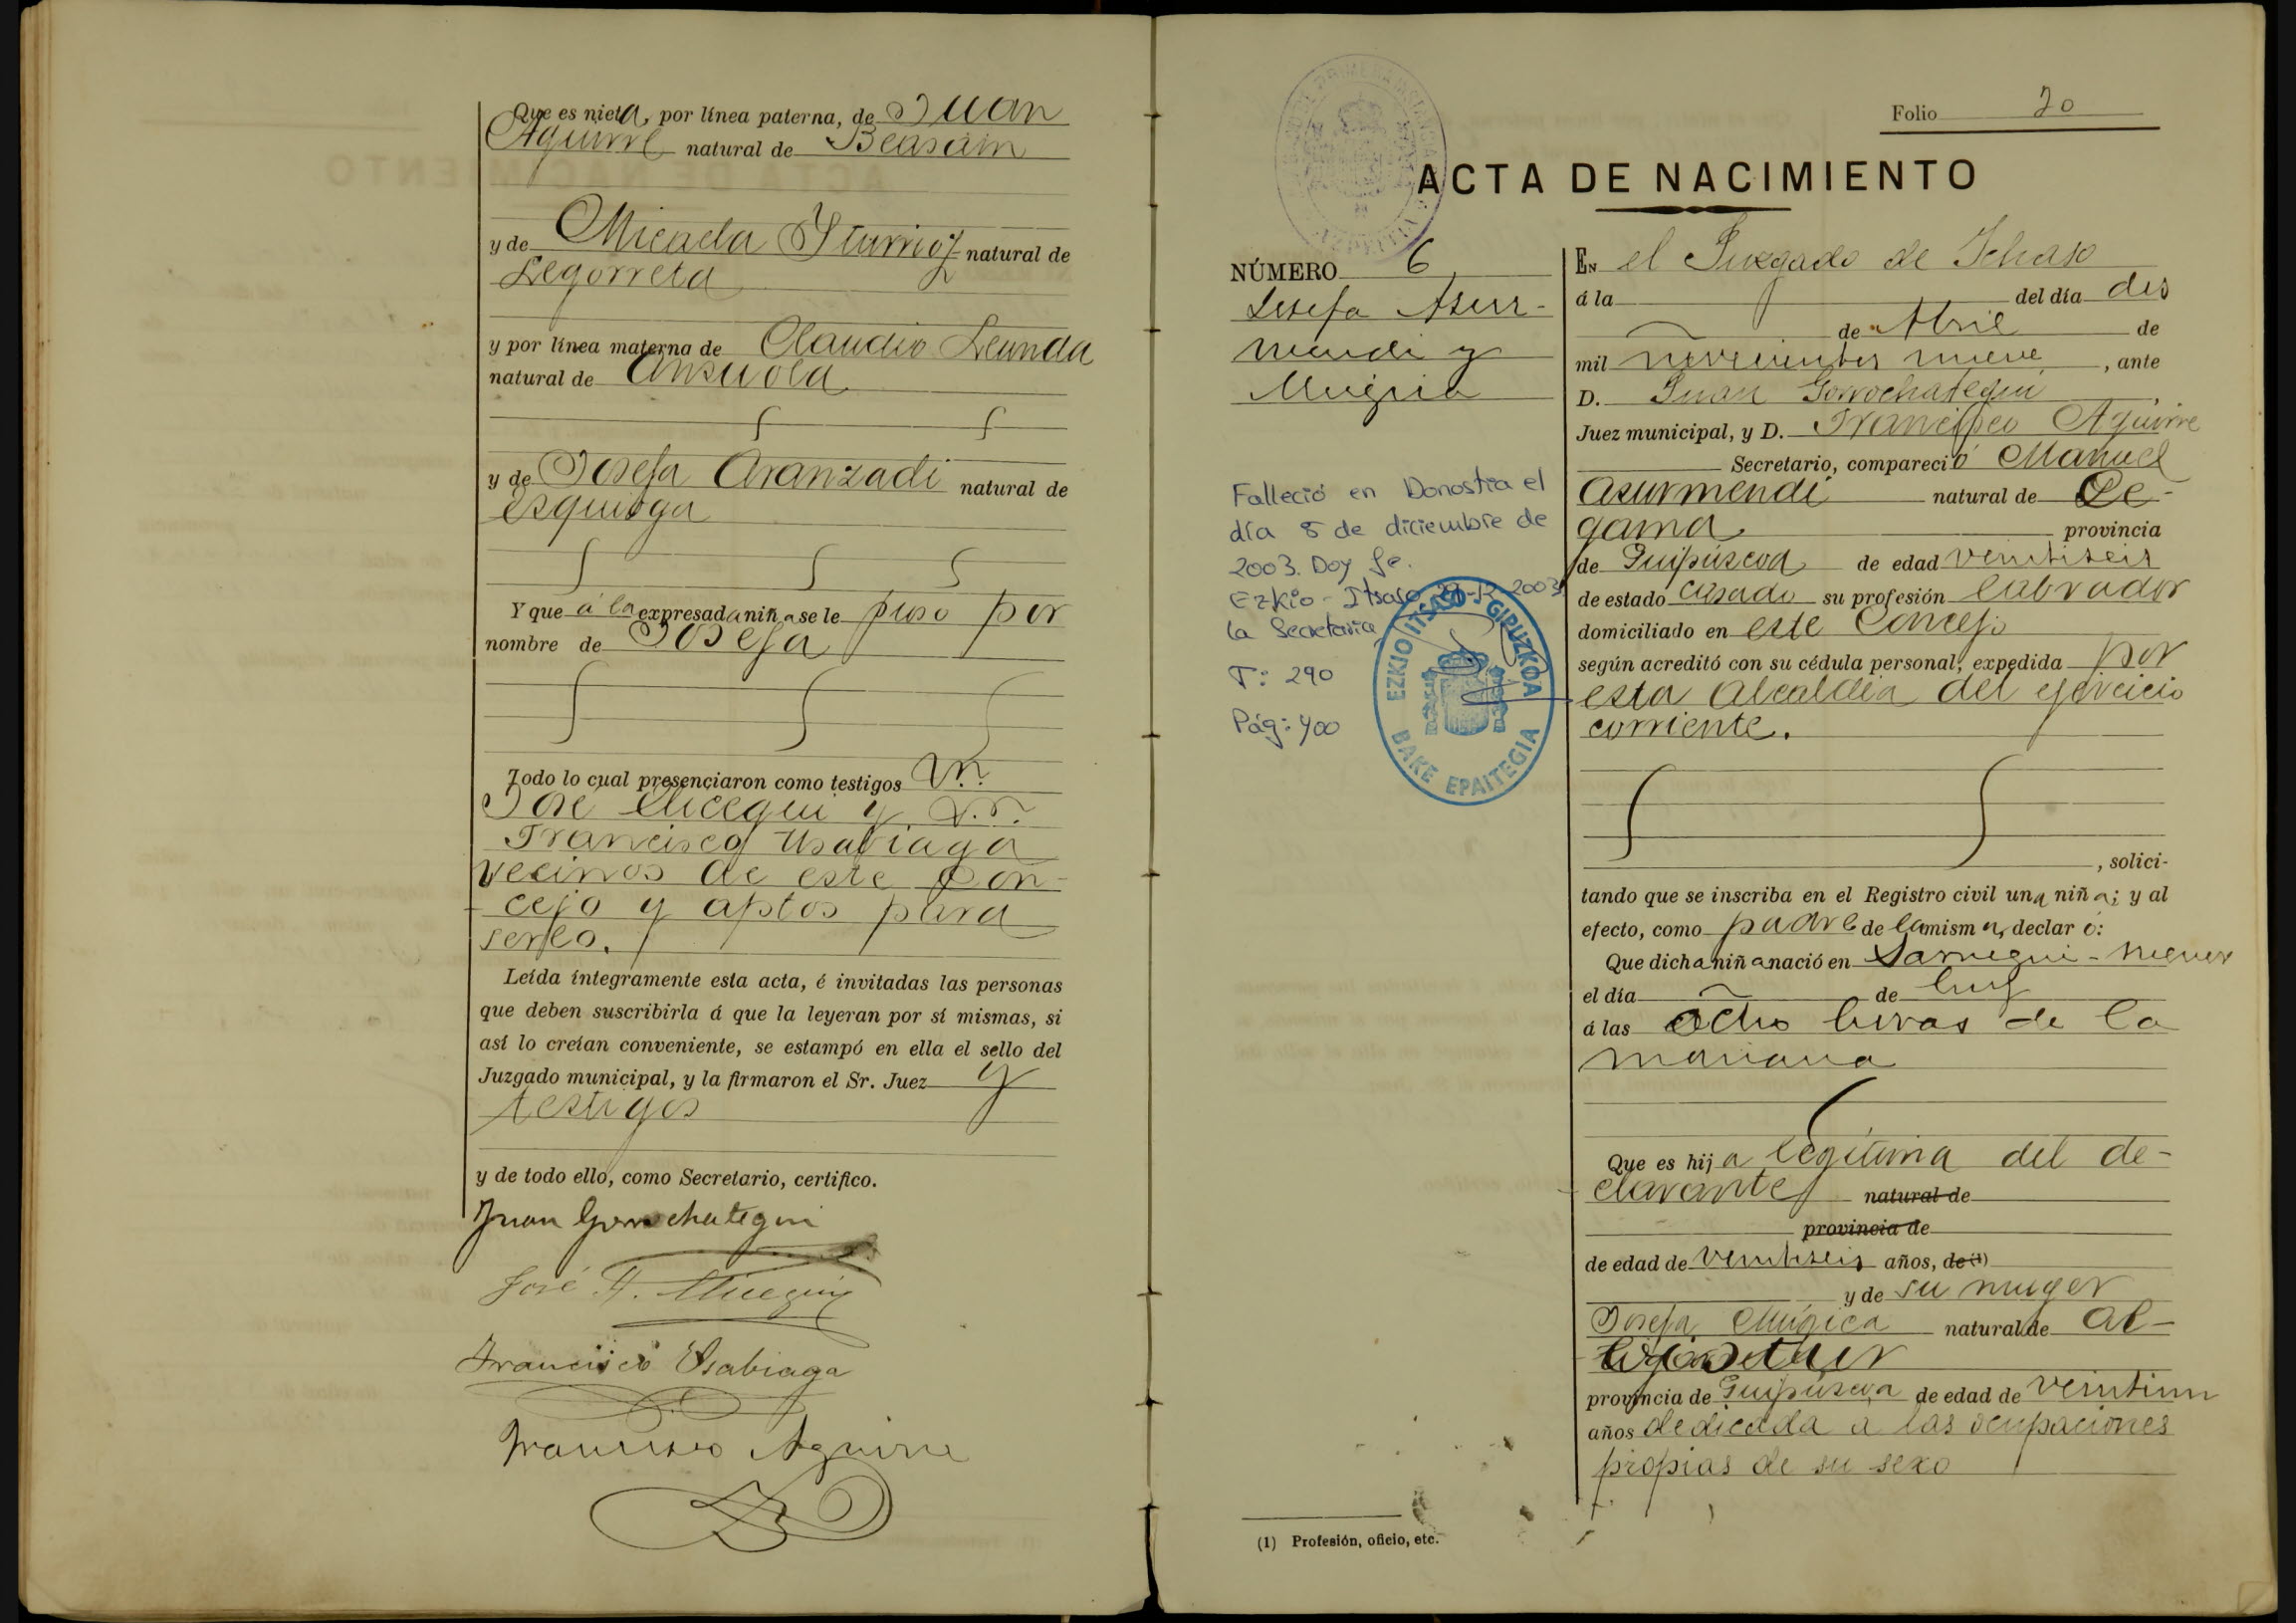 Que es nieta, por línea paterna, de Juan
Aguirre natural de Beasain
y de Micaela Yturrioz natural de
Legorreta
y por línea materna de Claudio Leunda
natural de Anzuola
y de Josefa Aranzadi natural de
Esquioga
Y que á la expresada niña se le puso por
nombre de Josefa
Todo lo cual presenciaron como testigos Dn.
José Elicegui y D.n.
Francisco Usabiaga
vecinos de este Con-
cejo y aptos para
serlo.
Leída íntegramente esta acta, é invitadas las personas
que deben suscribirla á que la leyeran por sí mismas, si
así lo creían conveniente, se estampó en ella el sello del
Juzgado municipal, y la firmaron el Sr. Juez y
testigos
y de todo ello, como Secretario, certifico.
Juan Gorrochategui
José A. Elicegui
Francisco Usabiaga
Francisco Aguirre
Folio 20
ACTA DE NACIMIENTO
NÚMERO 6
Josefa Asur-
mendi y
Mugica
Falleció en Donostia el
día 8 de diciembre de
2003. Doy fe.
Ezkio-Itsaso 2003
la Secretaria
T: 290
Pág: 400
EZKIO ITSASO GIPUZKOA
BAKE EPAITEGIA
En el Juzgado de Ichaso
á la del día dos
de Abril de
mil novecientos nueve, ante
D. Juan Gorrochategui
Juez municipal, y D. Francisco Aguirre
Secretario, compareció Manuel
Asurmendi natural de Ce-
gama provincia
de Guipúscoa de edad veintiseis
de estado casado su profesión labrador
domiciliado en este Concejo
según acreditó con su cédula personal, expedida por
esta Alcaldia del ejercicio
corriente.
, solici-
tando que se inscriba en el Registro civil una niña; y al
efecto, como padre de la misma, declaró:
Que dicha niña nació en Sarregui-menor
el día de hoy
á las ocho horas de la
mañana
Que es hija legitima del de-
clarante natural de
provincia de
de edad de veintiseis años, de (1)
y de su muger
Josefa Múgica natural de Al-
provincia de Guipúscoa de edad de veintiun
años dedicada a las ocupaciones
propias de su sexo
(1) Profesión, oficio, etc.